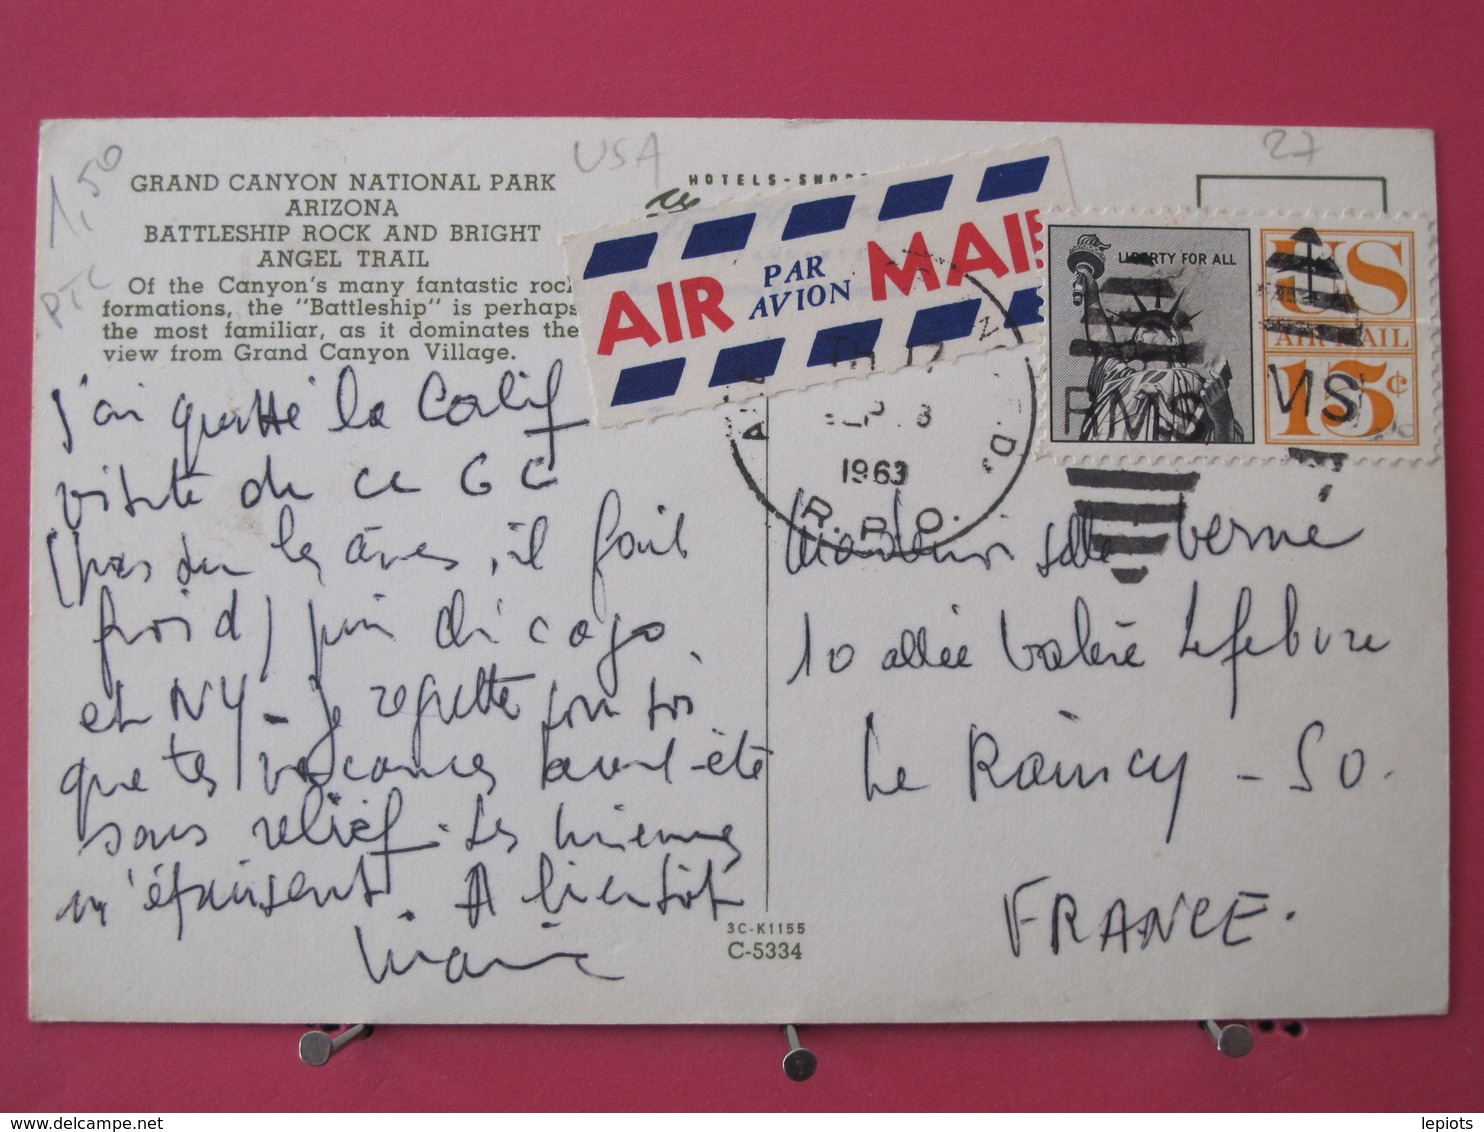 1,50
PTC
USA
27
GRAND CANYON NATIONAL PARK
ARIZONA
BATTLESHIP ROCK AND BRIGHT
ANGEL TRAIL
Of the Canyon's many fantastic rock
formations, the "Battleship" is perhaps
the most familiar, as it dominates the
view from Grand Canyon Village.
HOTELS-SHOPS
AIR PAR AVION MAIL
LIBERTY FOR ALL
US
AIR MAIL
15¢
RMS
SEP 3
1963
R.P.O.
j'ai quitté la Calif
visite de ce G C
(pas sur les ânes, il fait
froid) puis Chicago
et NY - je regrette pour toi
que tes vacances aient été
sans relief. Les miennes
m'épuisent. A bientôt
Marie
3C-K1155
C-5334
Mademoiselle Verne
10 allée Valère Lefebvre
Le Raincy - SO.
FRANCE.
lepiots